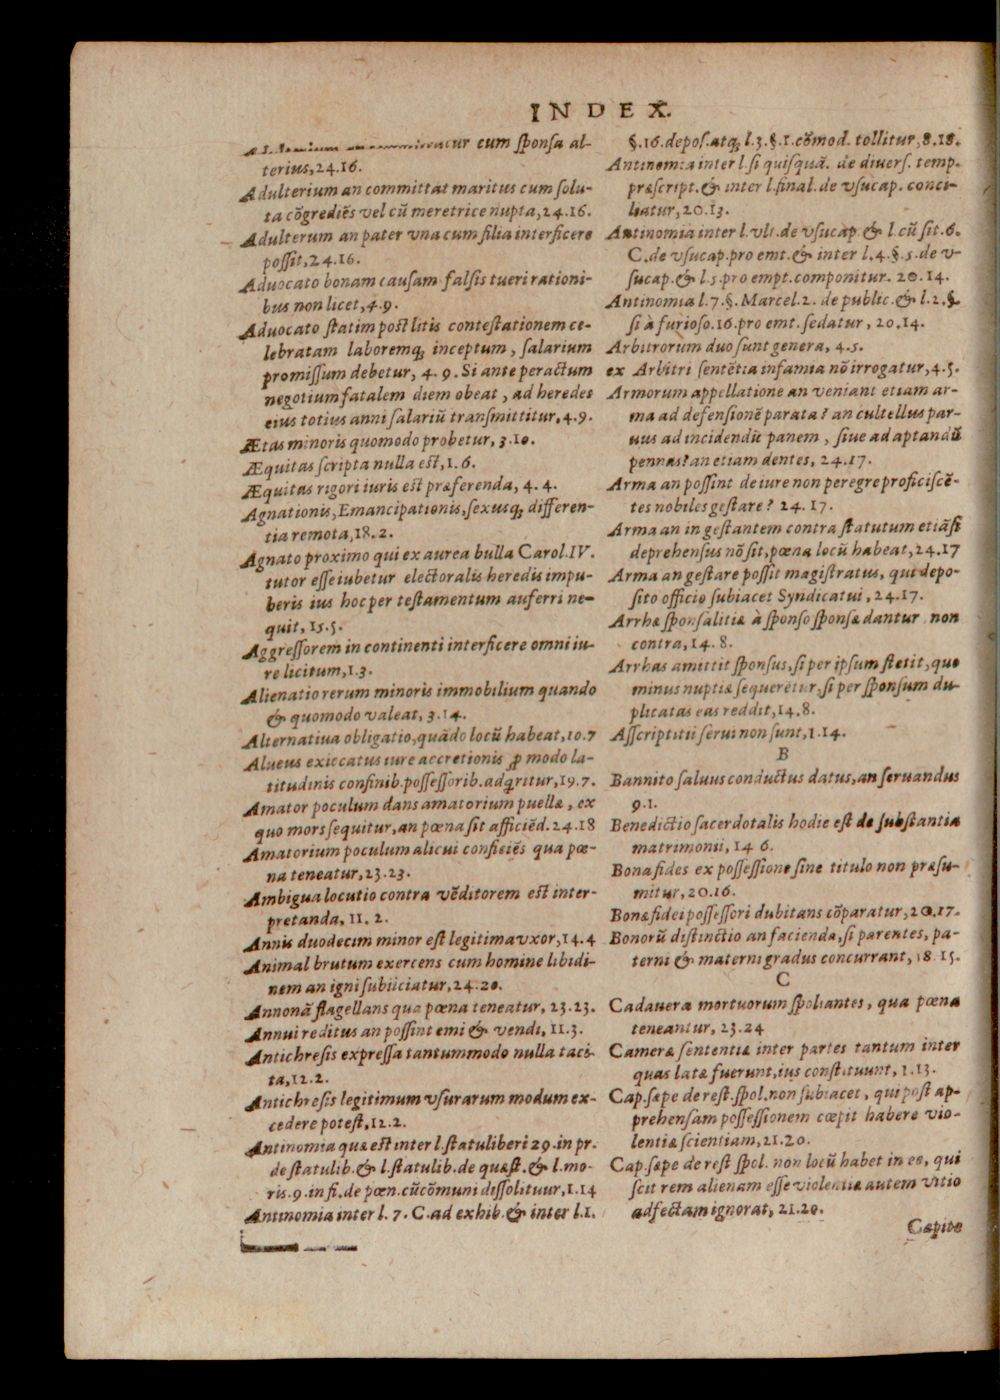 INDEX.
committatur cum sponsa al-
terius, 24.16.
Adulterium an committat maritus cum solu-
ta cõgrediẽs vel cũ meretrice nupta, 24.16.
Adulterum an pater vna cum filia interficere
possit, 24.16.
Aduocato bonam causam falsis tueri rationi-
bus non licet, 4.9.
Aduocato statim post litis contestationem ce-
lebratam laboremq; inceptum, salarium
promissum debetur, 4.9. Si ante peractum
negotium fatalem diem obeat, ad heredes
eius totius anni salariũ transmittitur, 4.9.
Ætas minoris quomodo probetur, 3.10.
Æquitas scripta nulla est, 1.6.
Æquitas rigori iuris est præferenda, 4.4.
Agnationis, Emancipationis, sexusq; differen-
tia remota, 18.2.
Agnato proximo qui ex aurea bulla Carol. IV.
tutor esse iubetur electoralis heredis impu-
beris ius hoc per testamentum auferri ne-
quit, 15.5.
Aggressorem in continenti interficere omni iu-
re licitum, 1.3.
Alienatio rerum minoris immobilium quando
& quomodo valeat, 3.14.
Alternatiua obligatio, quãdo locũ habeat, 10.7
Alueus exiccatus iure accretionis ꝓ modo la-
titudinis confinib. possessorib. adqritur, 19.7.
Amator poculum dans amatorium puellæ, ex
quo mors sequitur, an pœna sit afficiẽd. 24.18
Amatorium poculum alicui conficiẽs qua pœ-
na teneatur, 23.23.
Ambigua locutio contra vẽditorem est inter-
pretanda, 11.2.
Annis duodecim minor est legitima vxor, 14.4
Animal brutum exercens cum homine libidi-
nem an igni subiiciatur, 24.20.
Annonã flagellans qua pœna teneatur, 23.23.
Annui reditus an possint emi & vendi, 11.3.
Antichresis expressa tantummodo nulla taci-
ta, 12.2.
Antichresis legitimum vsurarum modum ex-
cedere potest, 12.2.
Antinomia quæ est inter l. statuliberi 29. in pr.
de statulib. & l. statulib. de quæst. & l. mo-
ris. 9. in fi. de pœn. cũ cõmuni dissolituur, 1.14
Antinomia inter l. 7. C. ad exhib. & inter l. 1.
§. 16. depos. atq; l. 3. §. 1. cõmod. tollitur, 8.18.
Antinomia inter l. si quisquã. de diuers. temp.
præscript. & inter l. final. de vsucap. conci-
liatur, 20.13.
Antinomia inter l. vlt. de vsucap. & l. cũ sit. 6.
C. de vsucap. pro emt. & inter l. 4. §. 5. de v-
sucap. & l. 5. pro empt. componitur. 20.14.
Antinomia l. 7. §. Marcel. 2. de public. & l. 2. §.
si à furioso. 16. pro emt. sedatur, 20.14.
Arbitrorum duo sunt genera, 4.5.
ex Arbitri sentẽtia infamia nõ irrogatur, 4.5.
Armorum appellatione an veniant etiam ar-
ma ad defensionẽ parata? an cultellus par-
uus ad incidendũ panem, siue ad aptandũ
pennas? an etiam dentes, 24.17.
Arma an possint de iure non peregre proficiscẽ-
tes nobiles gestare? 24.17.
Arma an in gestantem contra statutum etiã si
deprehensus nõ sit, pœna locũ habeat, 24.17
Arma an gestare possit magistratus, qui depo-
sito officio subiacet Syndicatui, 24.17.
Arrhæ sponsalitiæ à sponso sponsæ dantur non
contra, 14.8.
Arrhas amittit sponsus, si per ipsum stetit, quo
minus nuptiæ sequerẽtur, si per sponsum du-
plicatas eas reddit, 14.8.
Asscriptitii serui non sunt, 1.14.
B
Bannito saluus conductus datus, an seruandus
9.1.
Benedictio sacerdotalis hodie est de substantia
matrimonii, 14 6.
Bona fides ex possessione sine titulo non præsu-
mitur, 20.16.
Bonæ fidei possessori dubitans cõparatur, 20.17.
Bonorũ distinctio an facienda, si parentes, pa-
terni & materni gradus concurrant, 18.15.
C
Cadauera mortuorum spoliantes, qua pœna
teneantur, 23.24
Cameræ sententiæ inter partes tantum inter
quas latæ fuerunt, ius constituunt, 1.13.
Cap. sæpe de rest. spol. non subiacet, qui post ap-
prehensam possessionem cœpit habere vio-
lentiæ scientiam, 21.20.
Cap. sæpe de rest spol. non locũ habet in eo, qui
scit rem alienam esse violentiæ autem vitio
adfectam ignorat, 21.20.
Capite